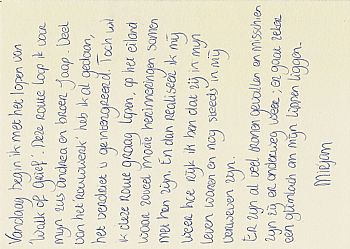 Vandaag begin ik met het lopen van
'Walk of Grief'. Deze route loop ik voor
mijn zus Andrea en broer Jaap. Veel
van het rouwwerk heb ik al gedaan,
het verdriet is geïntegreerd. Toch wil
ik deze route graag lopen, op het eiland
waar zoveel mooie herinneringen samen
met hen zijn. En dan realiseer ik mij
weer hoe rijk ik ben dat zij in mijn
leven waren en nog steeds in mij
verweven zijn.
Er zijn al veel tranen gevallen en misschien
zijn zij er onderweg weer, en gaat zeker
een glimlach om mijn lippen liggen.
Mirjam